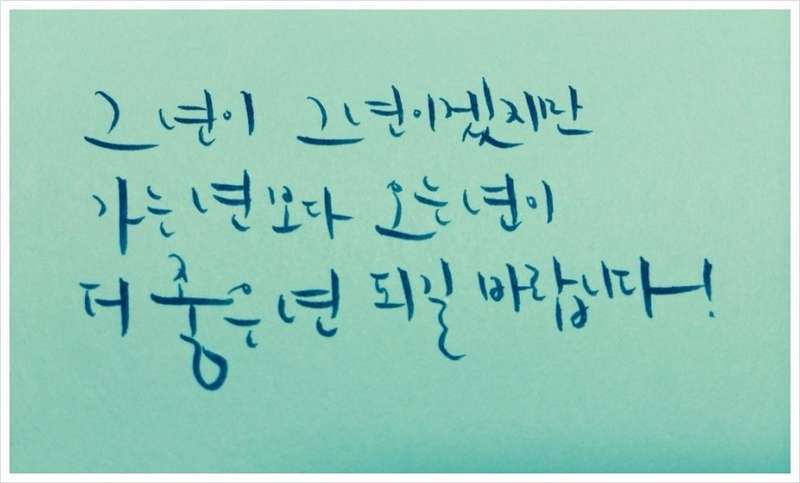 그 년이 그 년이겠지만
가는 년보다 오는 년이
더 좋은 년 되길 바랍니다!